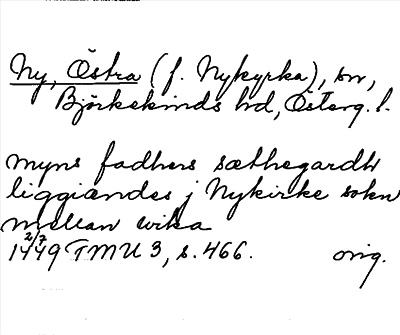 Ny, Östra (f. Nykyrka), sn,
Björkekinds hd, Österg. l.
myns fadhers sæthegardh
liggiændes j Nykirke sokn
mellan wika
2/7
1449 TMU 3, s. 466. orig.